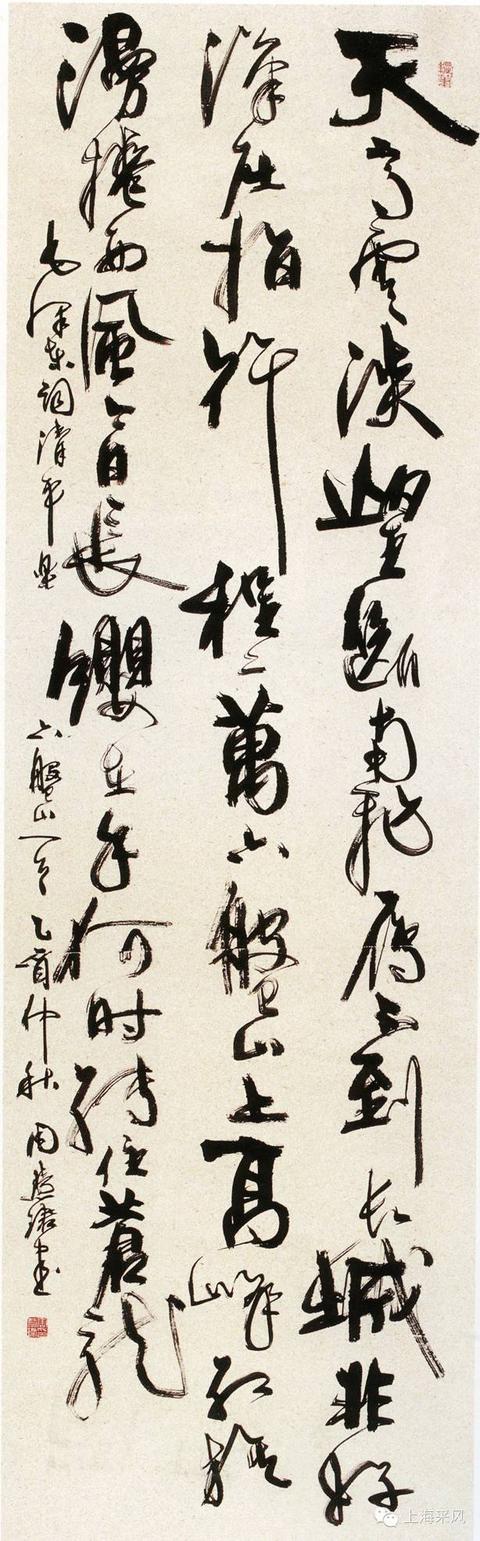 天高雲淡望斷南飛雁不到長城非好
漢屈指行程二萬六盤山上高峰紅旗
漫捲西風今日長纓在手何时縛住蒼龍
毛澤東詞清平樂 六盤山一首 乙酉仲秋 周慧珺書
上海采风